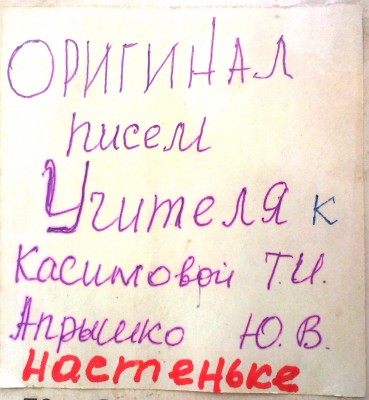 ОРИГИНАЛ
писем
Учителя к
Касимовой Т.И.
Апрышко Ю.В.
настеньке